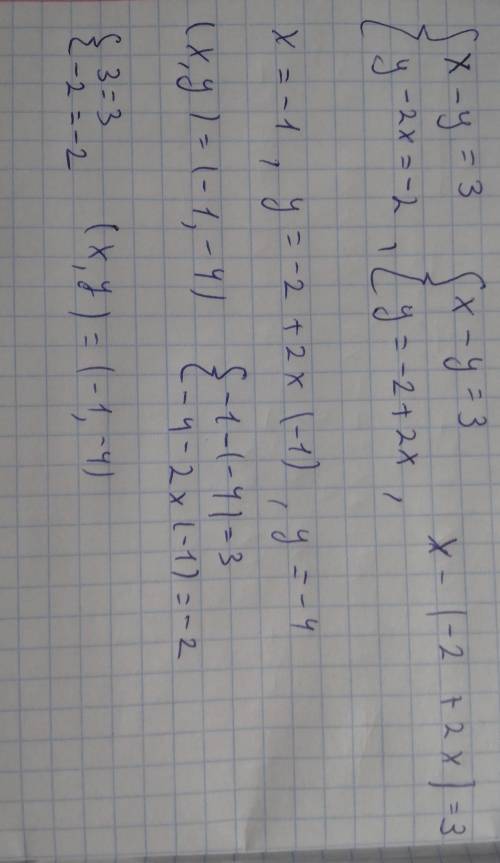 { x - y = 3 { x - y = 3
{ y - 2x = -2 , { y = -2 + 2x , x - (-2 + 2x) = 3
x = -1 , y = -2 + 2x (-1) , y = -4
(x,y) = (-1,-4) { -1 - (-4) = 3
{ -4 - 2x (-1) = -2
{ 3 = 3
{ -2 = -2 (x,y) = (-1,-4)